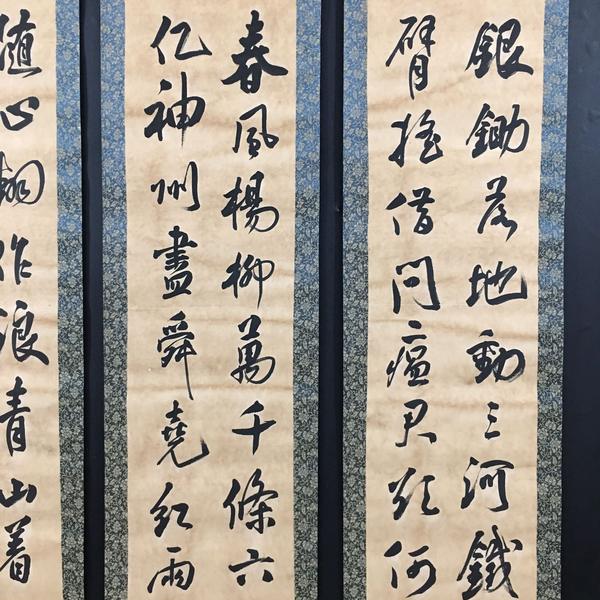 銀鋤落地動三河鐵
臂搖借問瘟君欲何
春風楊柳萬千條六
亿神州盡舜堯紅雨
随心翻作浪青山着